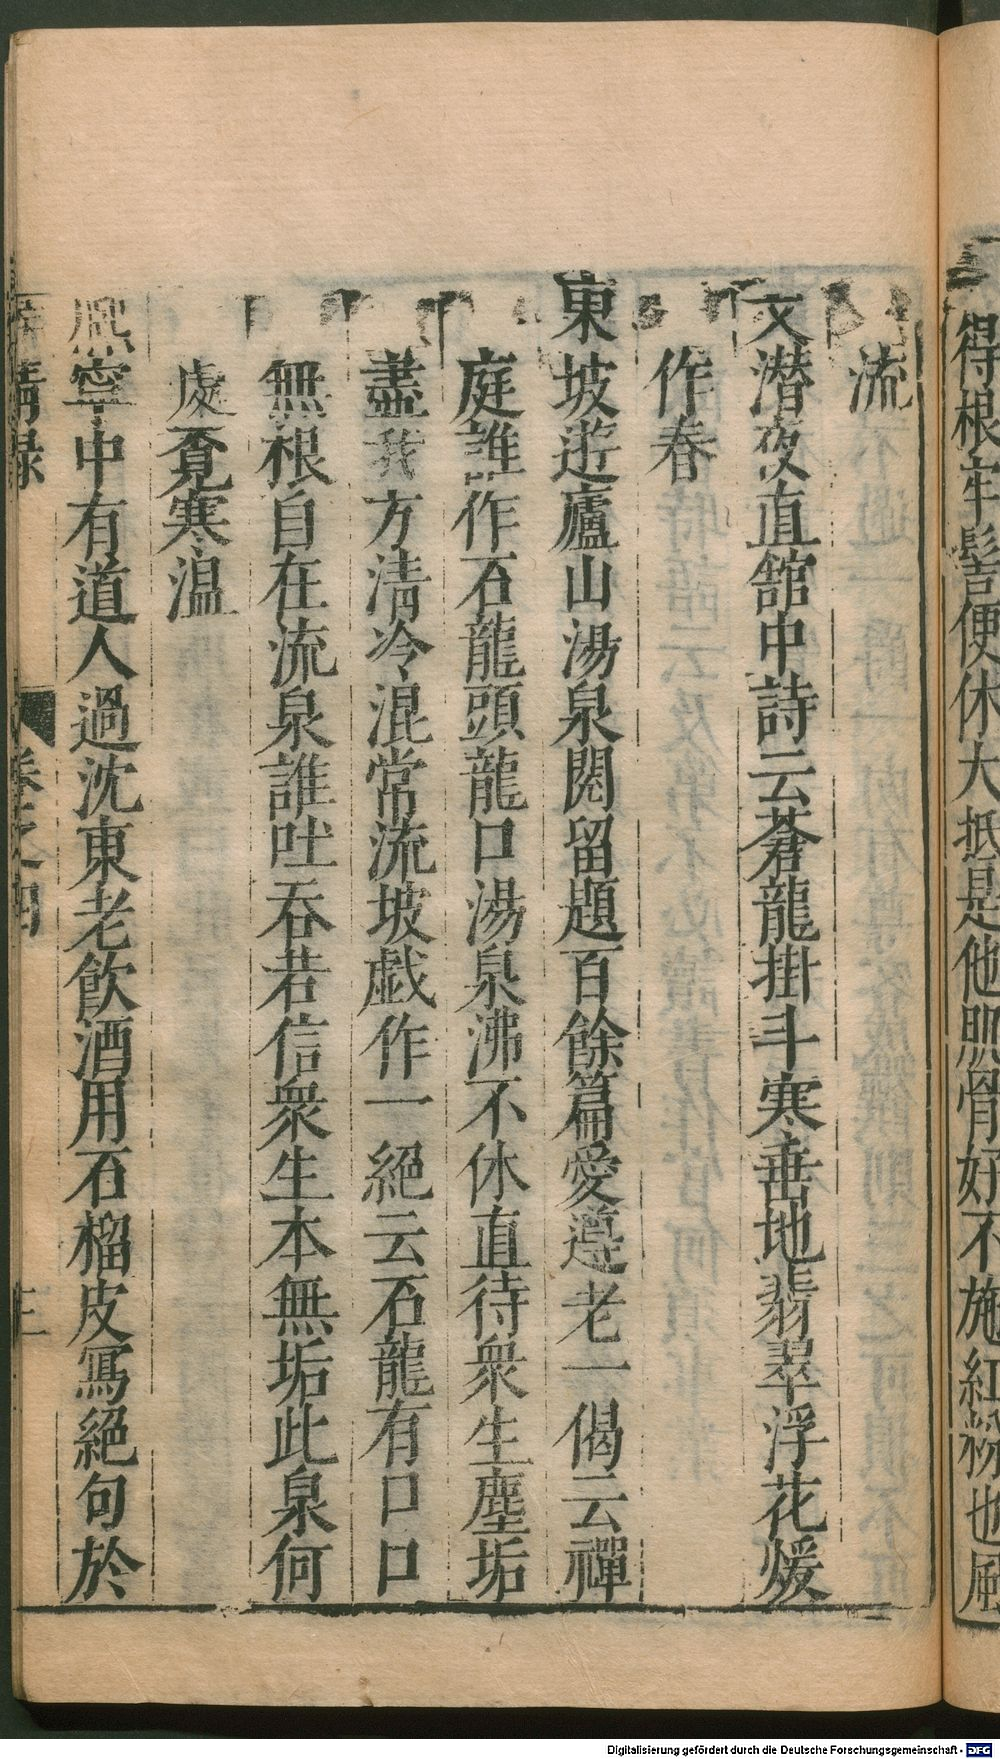 得根牢髻便休大抵是他肌骨好不施紅粉也風
流
文潜夜直舘中詩云蒼龍掛斗寒垂地翡翠浮花煖
作春
東坡遊廬山湯泉閱留題百餘篇愛遵老一偈云禪
庭誰作石龍頭龍口湯泉沸不休直待衆生塵垢
盡我方清冷混常流坡戯作一絕云石龍有口口
無根自在流泉誰吐吞若信衆生本無垢此泉何
處覓寒温
熈寧中有道人過沈東老飲酒用石榴皮寫絕句於
鯖録
卷之四
三
Digitalisierung gefördert durch die Deutsche Forschungsgemeinschaft - DFG